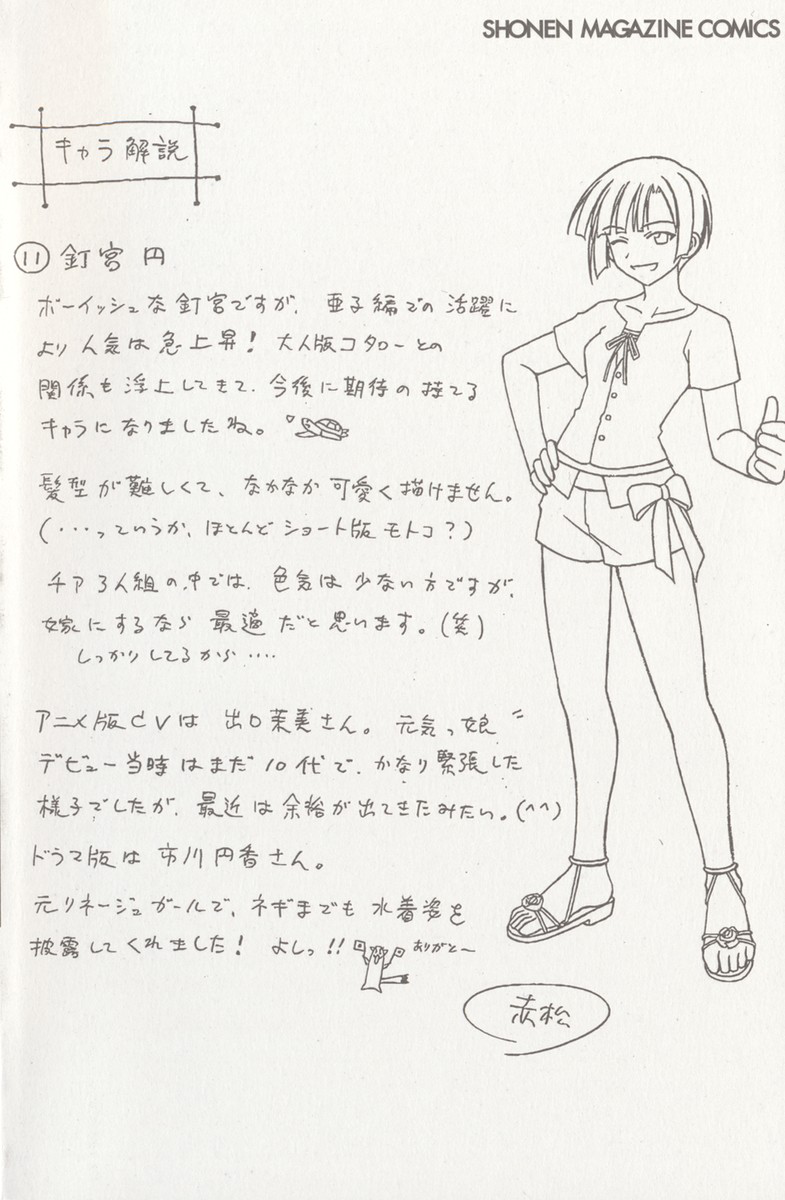 SHONEN MAGAZINE COMICS
キャラ解説
⑪ 釘宮 円
ボーイッシュな釘宮ですが、亜子編での活躍に
より人気は急上昇! 大人版コタローとの
関係も浮上してきて、今後に期待の持てる
キャラになりましたね。♡
髪型が難しくて、なかなか可愛く描けません。
(・・・っていうか、ほとんどショート版モトコ?)
チア3人組の中では、色気は少ない方ですが、
嫁にするなら最適だと思います。(笑)
しっかりしてるから・・・・
アニメ版CVは 出口茉美さん。元気っ娘
デビュー当時はまだ10代で、かなり緊張した
様子でしたが、最近は余裕が出てきたみたい。(^^)
ドラマ版は 市川円香さん。
元リネージュガールで、ネギまでも水着姿を
披露してくれました! よしっ!! ありがと〜
赤松